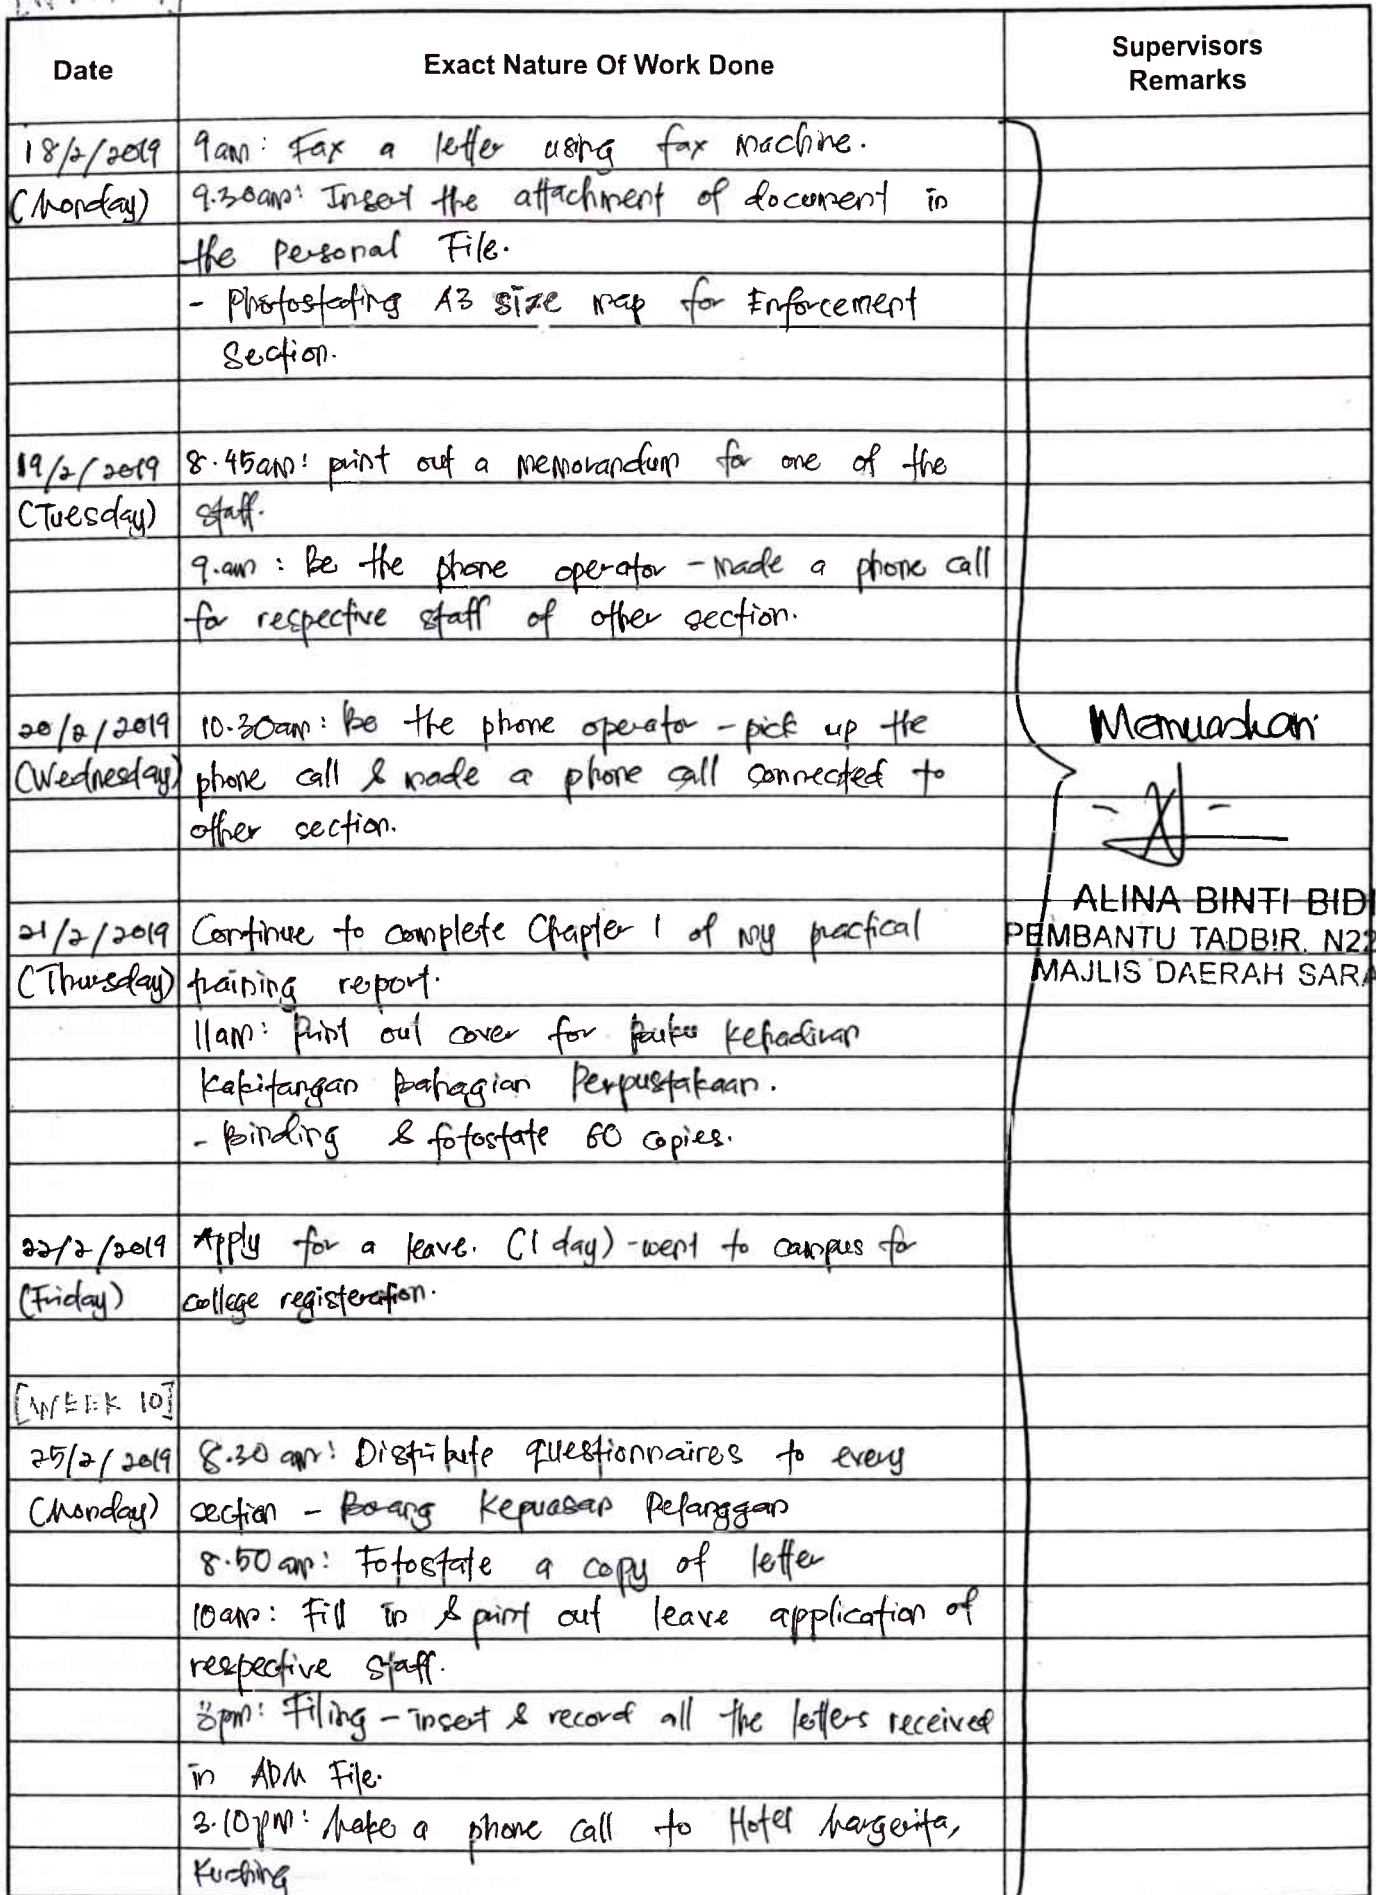 Date
Exact Nature Of Work Done
Supervisors
Remarks
18/2/2019
9am: Fax a letter using fax machine.
(Monday)
9.30am: Insert the attachment of document in
the personal File.
- Photostating A3 size map for Enforcement
Section.
19/2/2019
8.45am: print out a memorandum for one of the
(Tuesday)
staff.
9.am: Be the phone operator - made a phone call
for respective staff of other section.
20/2/2019
10.30am: Be the phone operator - pick up the
(Wednesday)
phone call & made a phone call connected to
other section.
Memuaskan
ALINA BINTI BIDI
PEMBANTU TADBIR. N22
MAJLIS DAERAH SARA
21/2/2019
Continue to complete Chapter 1 of my practical
(Thursday)
training report.
11am: Print out cover for buku kehadiran
kakitangan bahagian Perpustakaan.
- Binding & fotostate 60 copies.
22/2/2019
Apply for a leave. (1 day) - went to campus for
(Friday)
college registeration.
[WEEK 10]
25/2/2019
8.30 am: Distribute questionnaires to every
(Monday)
section - Borang Kepuasan Pelanggan
8.50 am: Fotostate a copy of letter
10am: Fill in & print out leave application of
respective staff.
3pm: Filing - insert & record all the letters received
in ADM File.
3.10pm: Make a phone call to Hotel Margerita,
Kuching